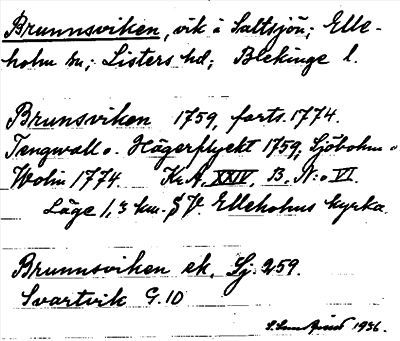 Brunnsviken, vik i Saltsjön; Elle-
holm sn; Listers hd; Blekinge l.
Brunsviken 1759, forts. 1774.
Tengwall o. Hägerflyckt 1759, Sjöbohm o
Wolin 1774. Kr.A. XXIV, B. N:o VI.
Läge 1,3 km. S V. Elleholms kyrka.
Brunnsviken ek. Sj. 259.
Svartvik G.10
1936.